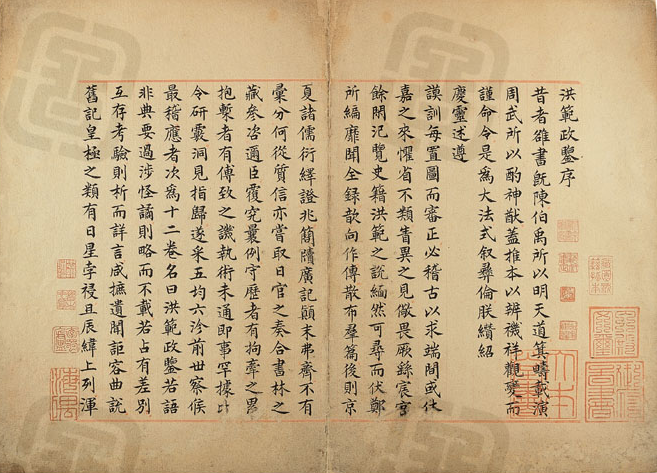 洪範政鑒序
昔者雒書既陳伯禹所以明天道箕疇載演
周武所以酌神猷蓋推本以辨禨祥觀變而
謹命令是為大法式叙彝倫朕纘紹
慶靈述遵
謨訓每置圖而審正必稽古以求端閒或休
嘉之來懼省不類眚異之見儆畏厥繇宸宮
餘閒汜覽史籍洪範之說緬然可尋而伏鄭
所編靡聞全録歆向作傳散布羣篇後則京
夏諸儒衍繹證兆簡牘廣記顛末弗齊不有
彙分何從質信亦嘗取日官之奏合書林之
藏參咨邇臣覆究曩例守歷者有拘牽之累
抱槧者有傅致之譏執術未通即事罕據比
令研覈洞見指歸遂采五均六沴前世察候
最稽應者次為十二卷名曰洪範政鑒若語
非典要過涉怪譎則略而不載若占有差別
互存考驗則析而詳言咸摭遺聞詎容曲說
舊記皇極之類有日星孛祲且辰緯上列渾